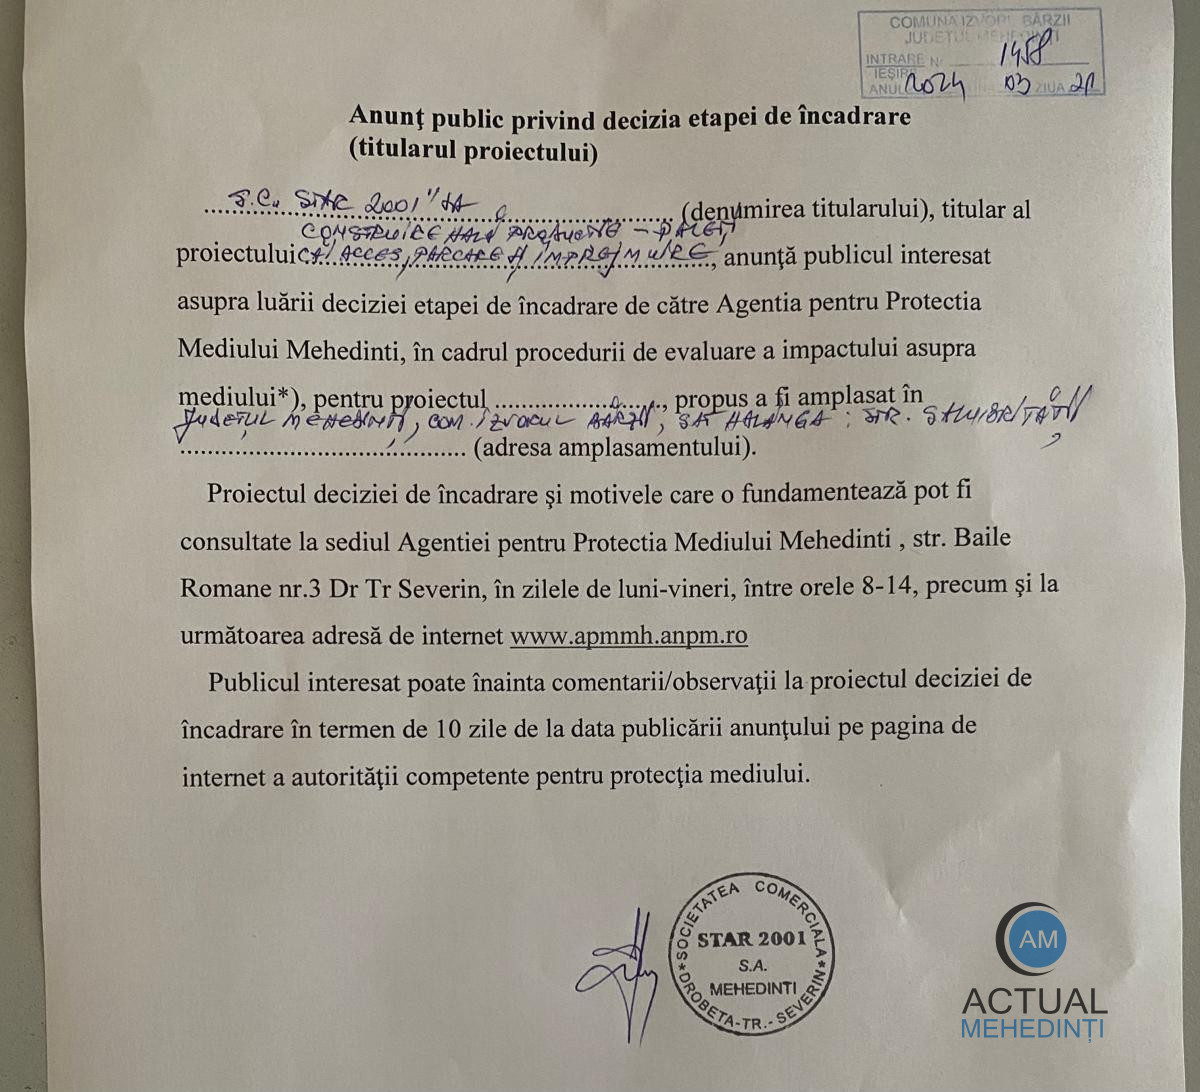 COMUNA IZVORUL BÂRZII
JUDEŢUL MEHEDINŢI
INTRARE Nr. 1458
IEŞIRE
ANUL 2024 03 ZIUA 21
Anunţ public privind decizia etapei de încadrare
(titularul proiectului)
S.C. STAR 2001" SA (denumirea titularului), titular al
CONSTRUIRE HALĂ PRODUCŢIE – PALEŢI,
proiectului CĂI ACCES, PARCARE ŞI ÎMPREJMUIRE, anunţă publicul interesat
asupra luării deciziei etapei de încadrare de către Agentia pentru Protectia
Mediului Mehedinti, în cadrul procedurii de evaluare a impactului asupra
mediului*), pentru proiectul ........................, propus a fi amplasat în
JUDEŢUL MEHEDINŢI, COM. IZVORUL BÂRZII, SAT HALÂNGA, STR. SALUBRITĂŢII,
.......................................... (adresa amplasamentului).
Proiectul deciziei de încadrare şi motivele care o fundamentează pot fi
consultate la sediul Agentiei pentru Protectia Mediului Mehedinti , str. Baile
Romane nr.3 Dr Tr Severin, în zilele de luni-vineri, între orele 8-14, precum şi la
următoarea adresă de internet www.apmmh.anpm.ro
Publicul interesat poate înainta comentarii/observaţii la proiectul deciziei de
încadrare în termen de 10 zile de la data publicării anunţului pe pagina de
internet a autorităţii competente pentru protecţia mediului.
SOCIETATEA COMERCIALA
STAR 2001
S.A.
MEHEDINTI
DROBETA-TR.-SEVERIN
AM
ACTUAL
MEHEDINȚI